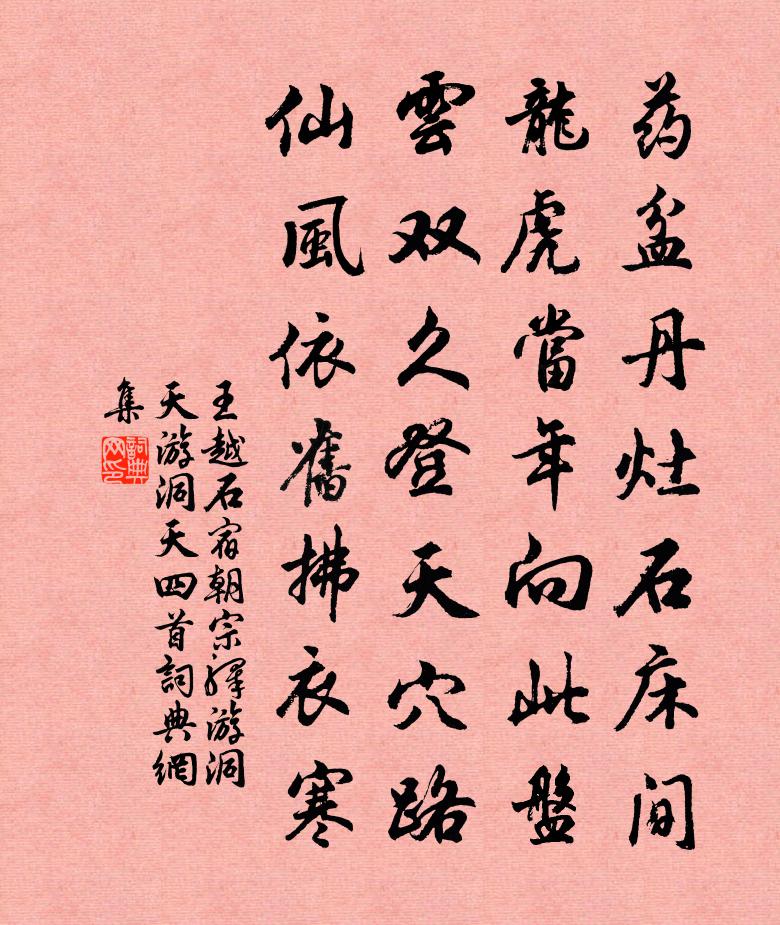 药盆丹灶石床间
龍虎當年向此盤
雲双久登天穴路
仙風依舊拂衣寒
王越石宿朝宗驿游洞
天游洞天四首詞典網
集
詞典网印